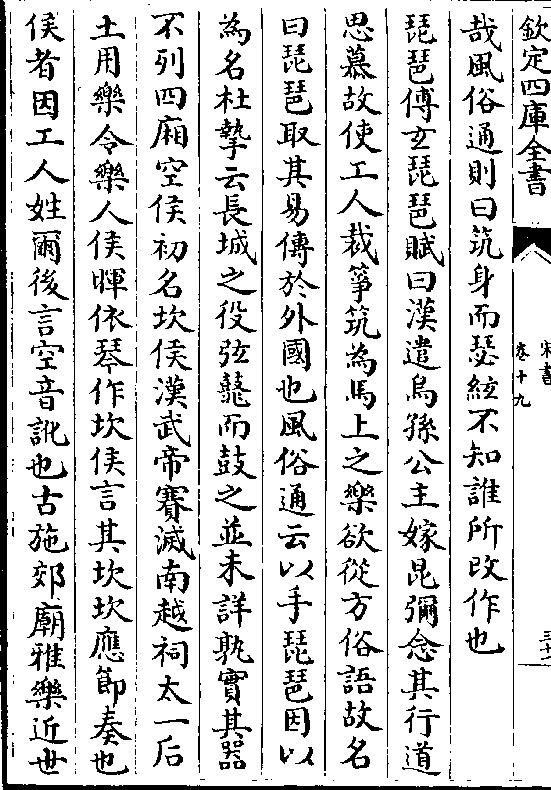 欽定四庫全書
宋書
卷十九
三十一
哉風俗通則曰筑身而瑟絃不知誰所改作也
琵琶傅玄琵琶賦曰漢遣烏孫公主嫁昆彌念其行道
思慕故使工人裁箏筑為馬上之樂欲從方俗語故名
曰琵琶取其易傳於外國也風俗通云以手琵琶因以
為名杜摯云長城之役弦鼗而鼓之並未詳孰實其器
不列四廂空侯初名坎侯漢武帝賽滅南越祠太一后
土用樂令樂人侯暉依琴作坎侯言其坎坎應節奏也
侯者因工人姓爾後言空音訛也古施郊廟雅樂近世